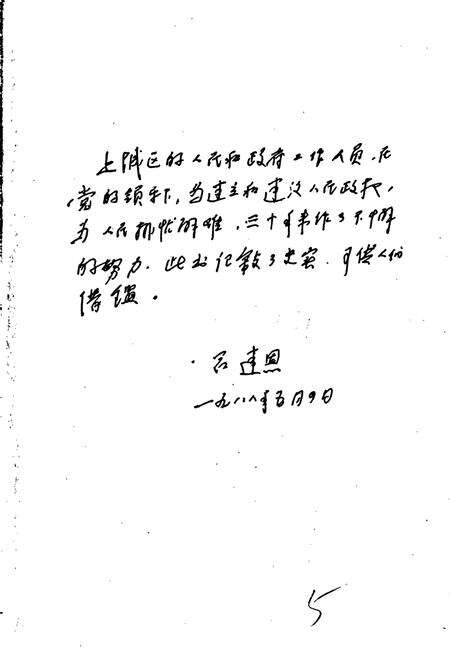 上城区的人民和政府工作人员,在
党的领导下,为建立和建设人民政权,
为人民排忧解难,三十年来作了不懈
的努力.此书记叙了史实.可供人们
借鉴。
吕建恩
一九八八年五月四日
5